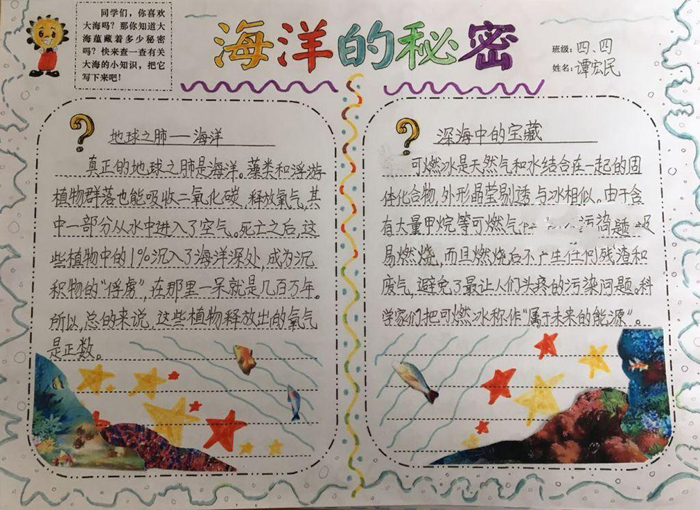 同学们，你喜欢
大海吗？那你知道大
海蕴藏着多少秘密
吗？快来查一查有关
大海的小知识，把它
写下来吧！
海洋的秘密
班级：四、四
姓名：谭宏民
？地球之肺——海洋
真正的地球之肺是海洋。藻类和浮游
植物群落也能吸收二氧化碳，释放氧气，其
中一部分从水中进入了空气。死亡之后，这
些植物中的1%沉入了海洋深处，成为沉
积物的“俘虏”，在那里一呆就是几百万年。
所以，总的来说，这些植物释放出的氧气
是正数。
？深海中的宝藏
可燃冰是天然气和水结合在一起的固
体化合物，外形晶莹剔透与冰相似。由于含
有大量甲烷等可燃气 污染题
易燃烧，而且燃烧后不产生任何残渣和
废气，避免了最让人们头疼的污染问题。科
学家们把可燃冰称作“属于未来的能源”。